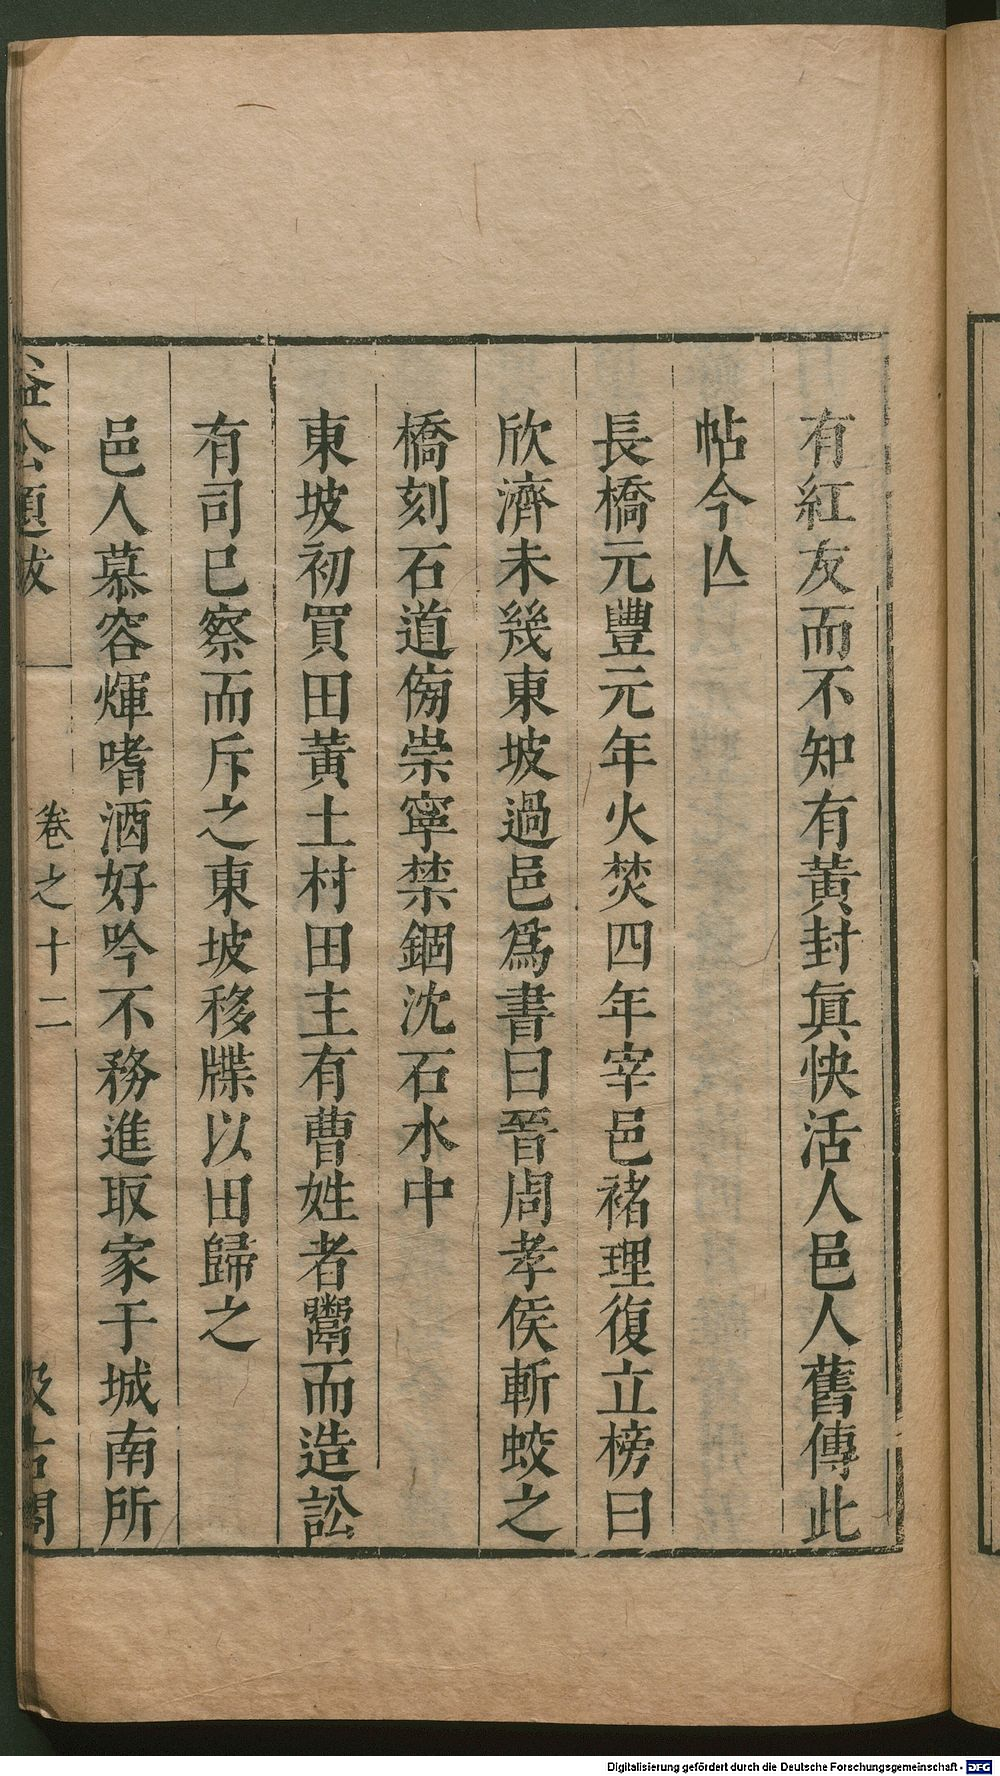 有紅友而不知有黃封眞快活人邑人舊傳此
帖今亾
長橋元豐元年火焚四年宰邑褚理復立榜曰
欣濟未幾東坡過邑爲書曰晉周孝侯斬蛟之
橋刻石道傍崇寧禁錮沈石水中
東坡初買田黃土村田主有曹姓者鬻而造訟
有司已察而斥之東坡移牒以田歸之
邑人慕容煇嗜酒好吟不務進取家于城南所
益公題跋
卷之十二
汲古閣
Digitalisierung gefördert durch die Deutsche Forschungsgemeinschaft - DFG